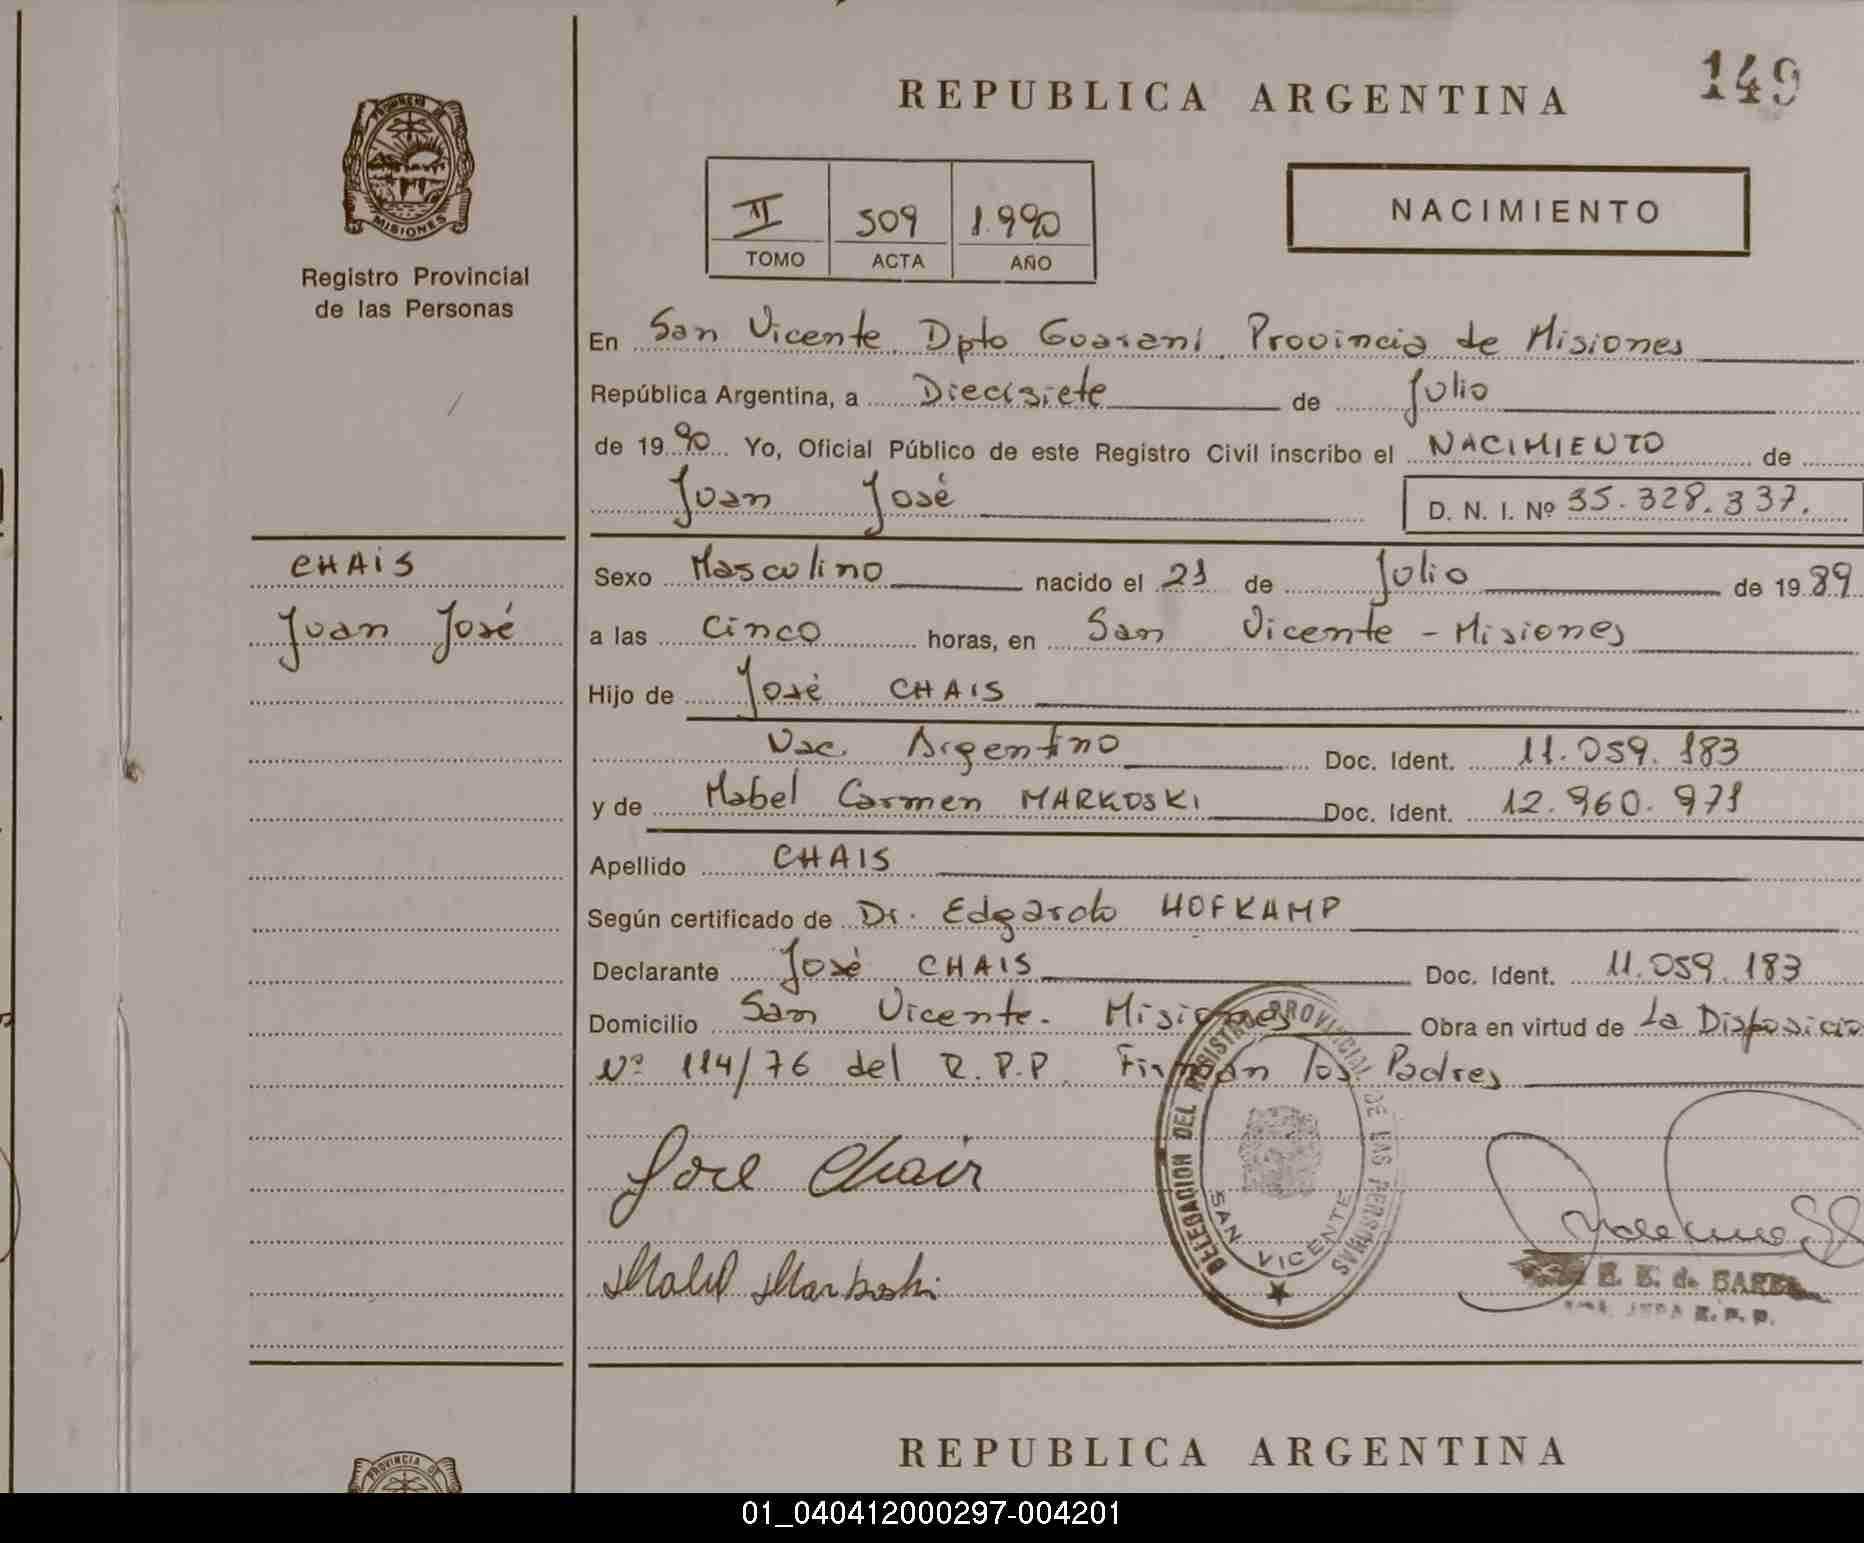 149
REPUBLICA ARGENTINA
PROVINCIA DE
MISIONES
Registro Provincial
de las Personas
II 509 1.990
TOMO ACTA AÑO
NACIMIENTO
En San Vicente Dpto Guaraní Provincia de Misiones
República Argentina, a Diecisiete de Julio
de 19 90 Yo, Oficial Público de este Registro Civil inscribo el NACIMIENTO de
Juan José D. N. I. Nº 35.328.337.
CHAIS
Juan José
Sexo Masculino nacido el 21 de Julio de 19 89
a las Cinco horas, en San Vicente - Misiones
Hijo de José CHAIS
Nac. Argentino Doc. Ident. 11.059.183
y de Mabel Carmen MARKOSKI Doc. Ident. 12.960.971
Apellido CHAIS
Según certificado de Dr. Edgardo HOFKAMP
Declarante José CHAIS Doc. Ident. 11.059.183
Domicilio San Vicente - Misiones Obra en virtud de La Disposicio
Nº 114/76 del R.P.P. Firman los Padres
Jose Chais
Mabel Markoski
DELEGACION DEL REGISTRO PROVINCIAL DE LAS PERSONAS
SAN VICENTE
E. de
R. P. P.
REPUBLICA ARGENTINA
PROVINCIA DE
01_040412000297-004201